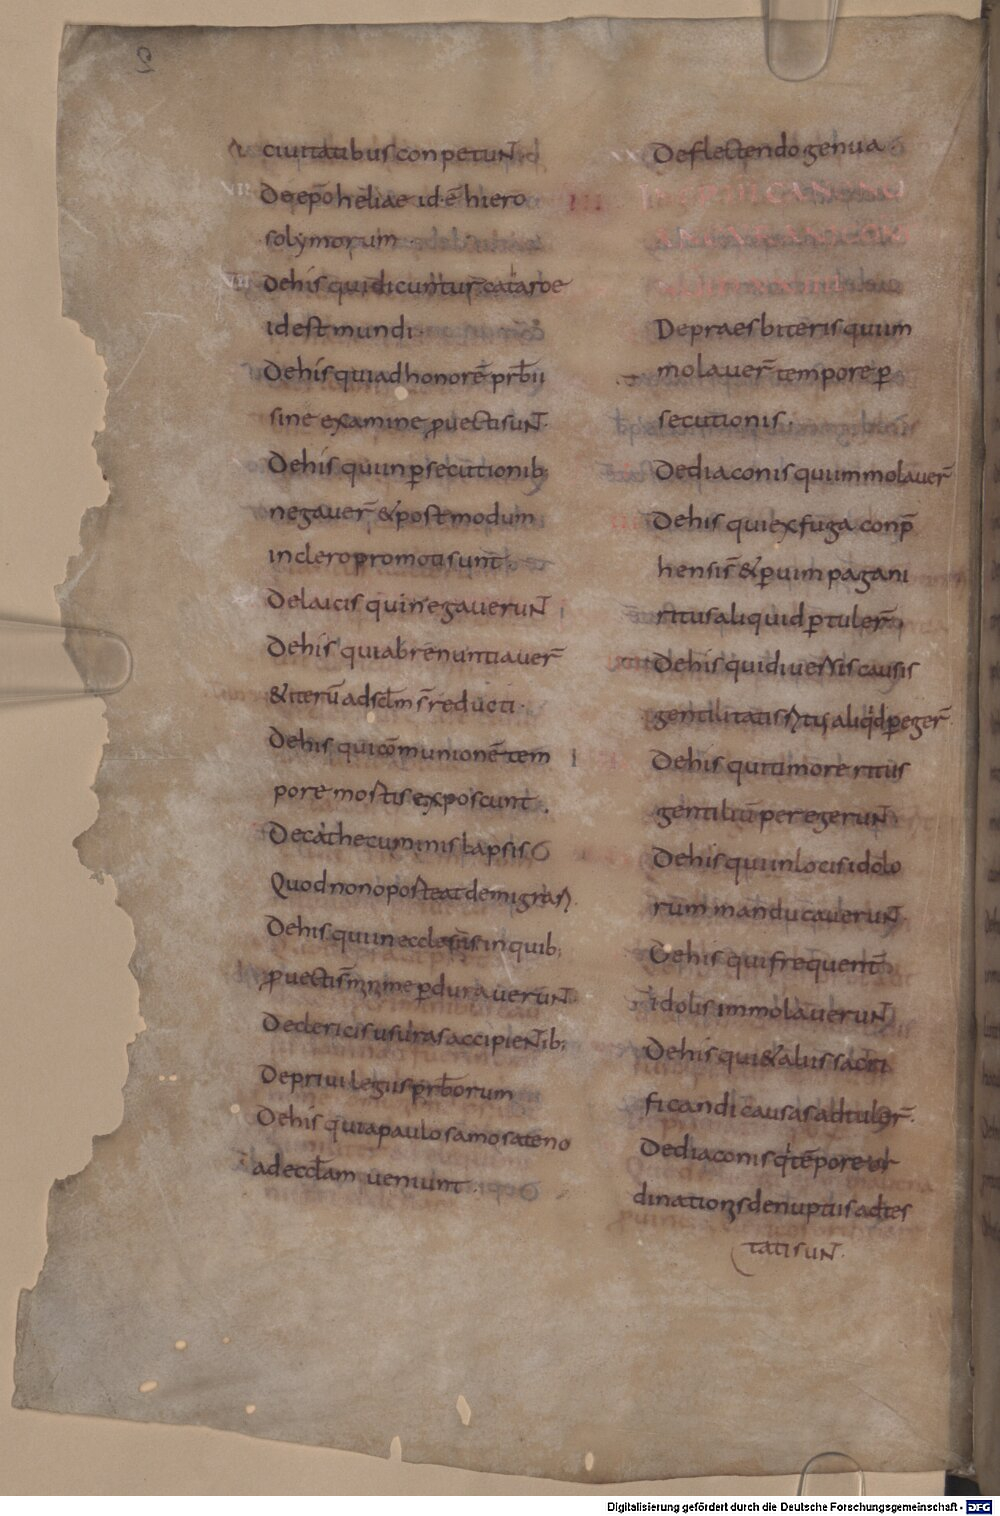 ciuitatibus conpetunt
De ep̄o heliae id ē hiero
solymorum
De his qui dicuntur cataroe
id est mundi
De his qui ad honorē prb̄ii
sine examine ꝓuecti sunt
De his qui in ꝑsecutionib;
negauer̄ & postmodum
in clero promoti sunt
De laicis qui negauerunt
De his qui abrenuntiauer̄
& iterū ad scl̄m s̄ reducti
De his qui cōmunionē tem
pore mortis exposcunt
De cathecuminis lapsis
Quod non oporteat demigrari
De his qui in ecclesiis in quib;
ꝓuecti s̄ minime ꝑdurauerunt
De clericis usuras accipientib;
De priuilegiis prb̄orum
De his qui a paulo samosateno
ad eccl̄am ueniunt
De flectendo genua
De praesbiteris qui im
molauer̄ tempore ꝑ
secutionis
De diaconis qui immolauer̄
De his qui ex fuga conp̄
hensi s̄ & ꝑ uim pagani
ritus aliquid ꝑtuler̄
De his qui diuersis causis
gentilitatis aliqd ꝑeger̄
De his qui timore ritus
gentiliū peregerunt
De his qui in locis idolo
rum manducauerunt
De his qui frequent̄
idolis immolauerunt
De his qui & alios sacri
ficandi causas adtuler̄
De diaconis q̇ tēpore or
dinationis de nuptiis adtes
tati sunt